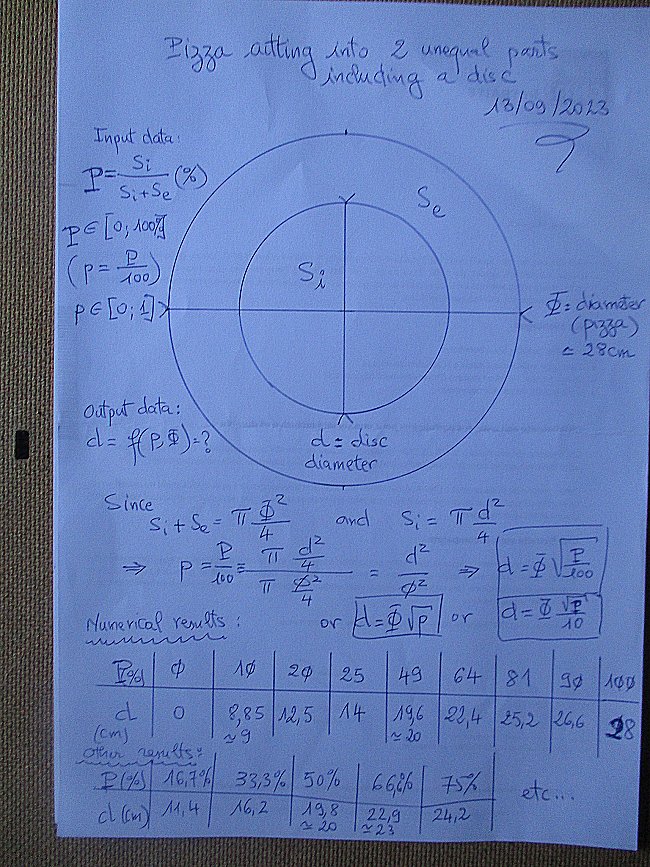 Pizza cutting into 2 unequal parts
including a disc
13/09/2023
Input data:
P = Si / (Si + Se) (%)
P ∈ [0; 100%]
(p = P/100)
p ∈ [0; 1]
Se
Si
Φ = diameter
(pizza)
≃ 28cm
Output data:
d = f(P, Φ) = ?
d = disc
diameter
Since
Si + Se = π Φ²/4 and Si = π d²/4
⇒ p = P/100 = (π d²/4) / (π Φ²/4) = d²/Φ² ⇒ d = Φ √(P/100)
Numerical results: or d = Φ √p or d = Φ √P/10
P(%) 0 10 20 25 49 64 81 90 100
d (cm) 0 8,85 ≃9 12,5 14 19,6 ≃20 22,4 25,2 26,6 28
Other results:
P(%) 16,7% 33,3% 50% 66,6% 75% etc...
d(cm) 11,4 16,2 19,8 ≃20 22,9 ≃23 24,2